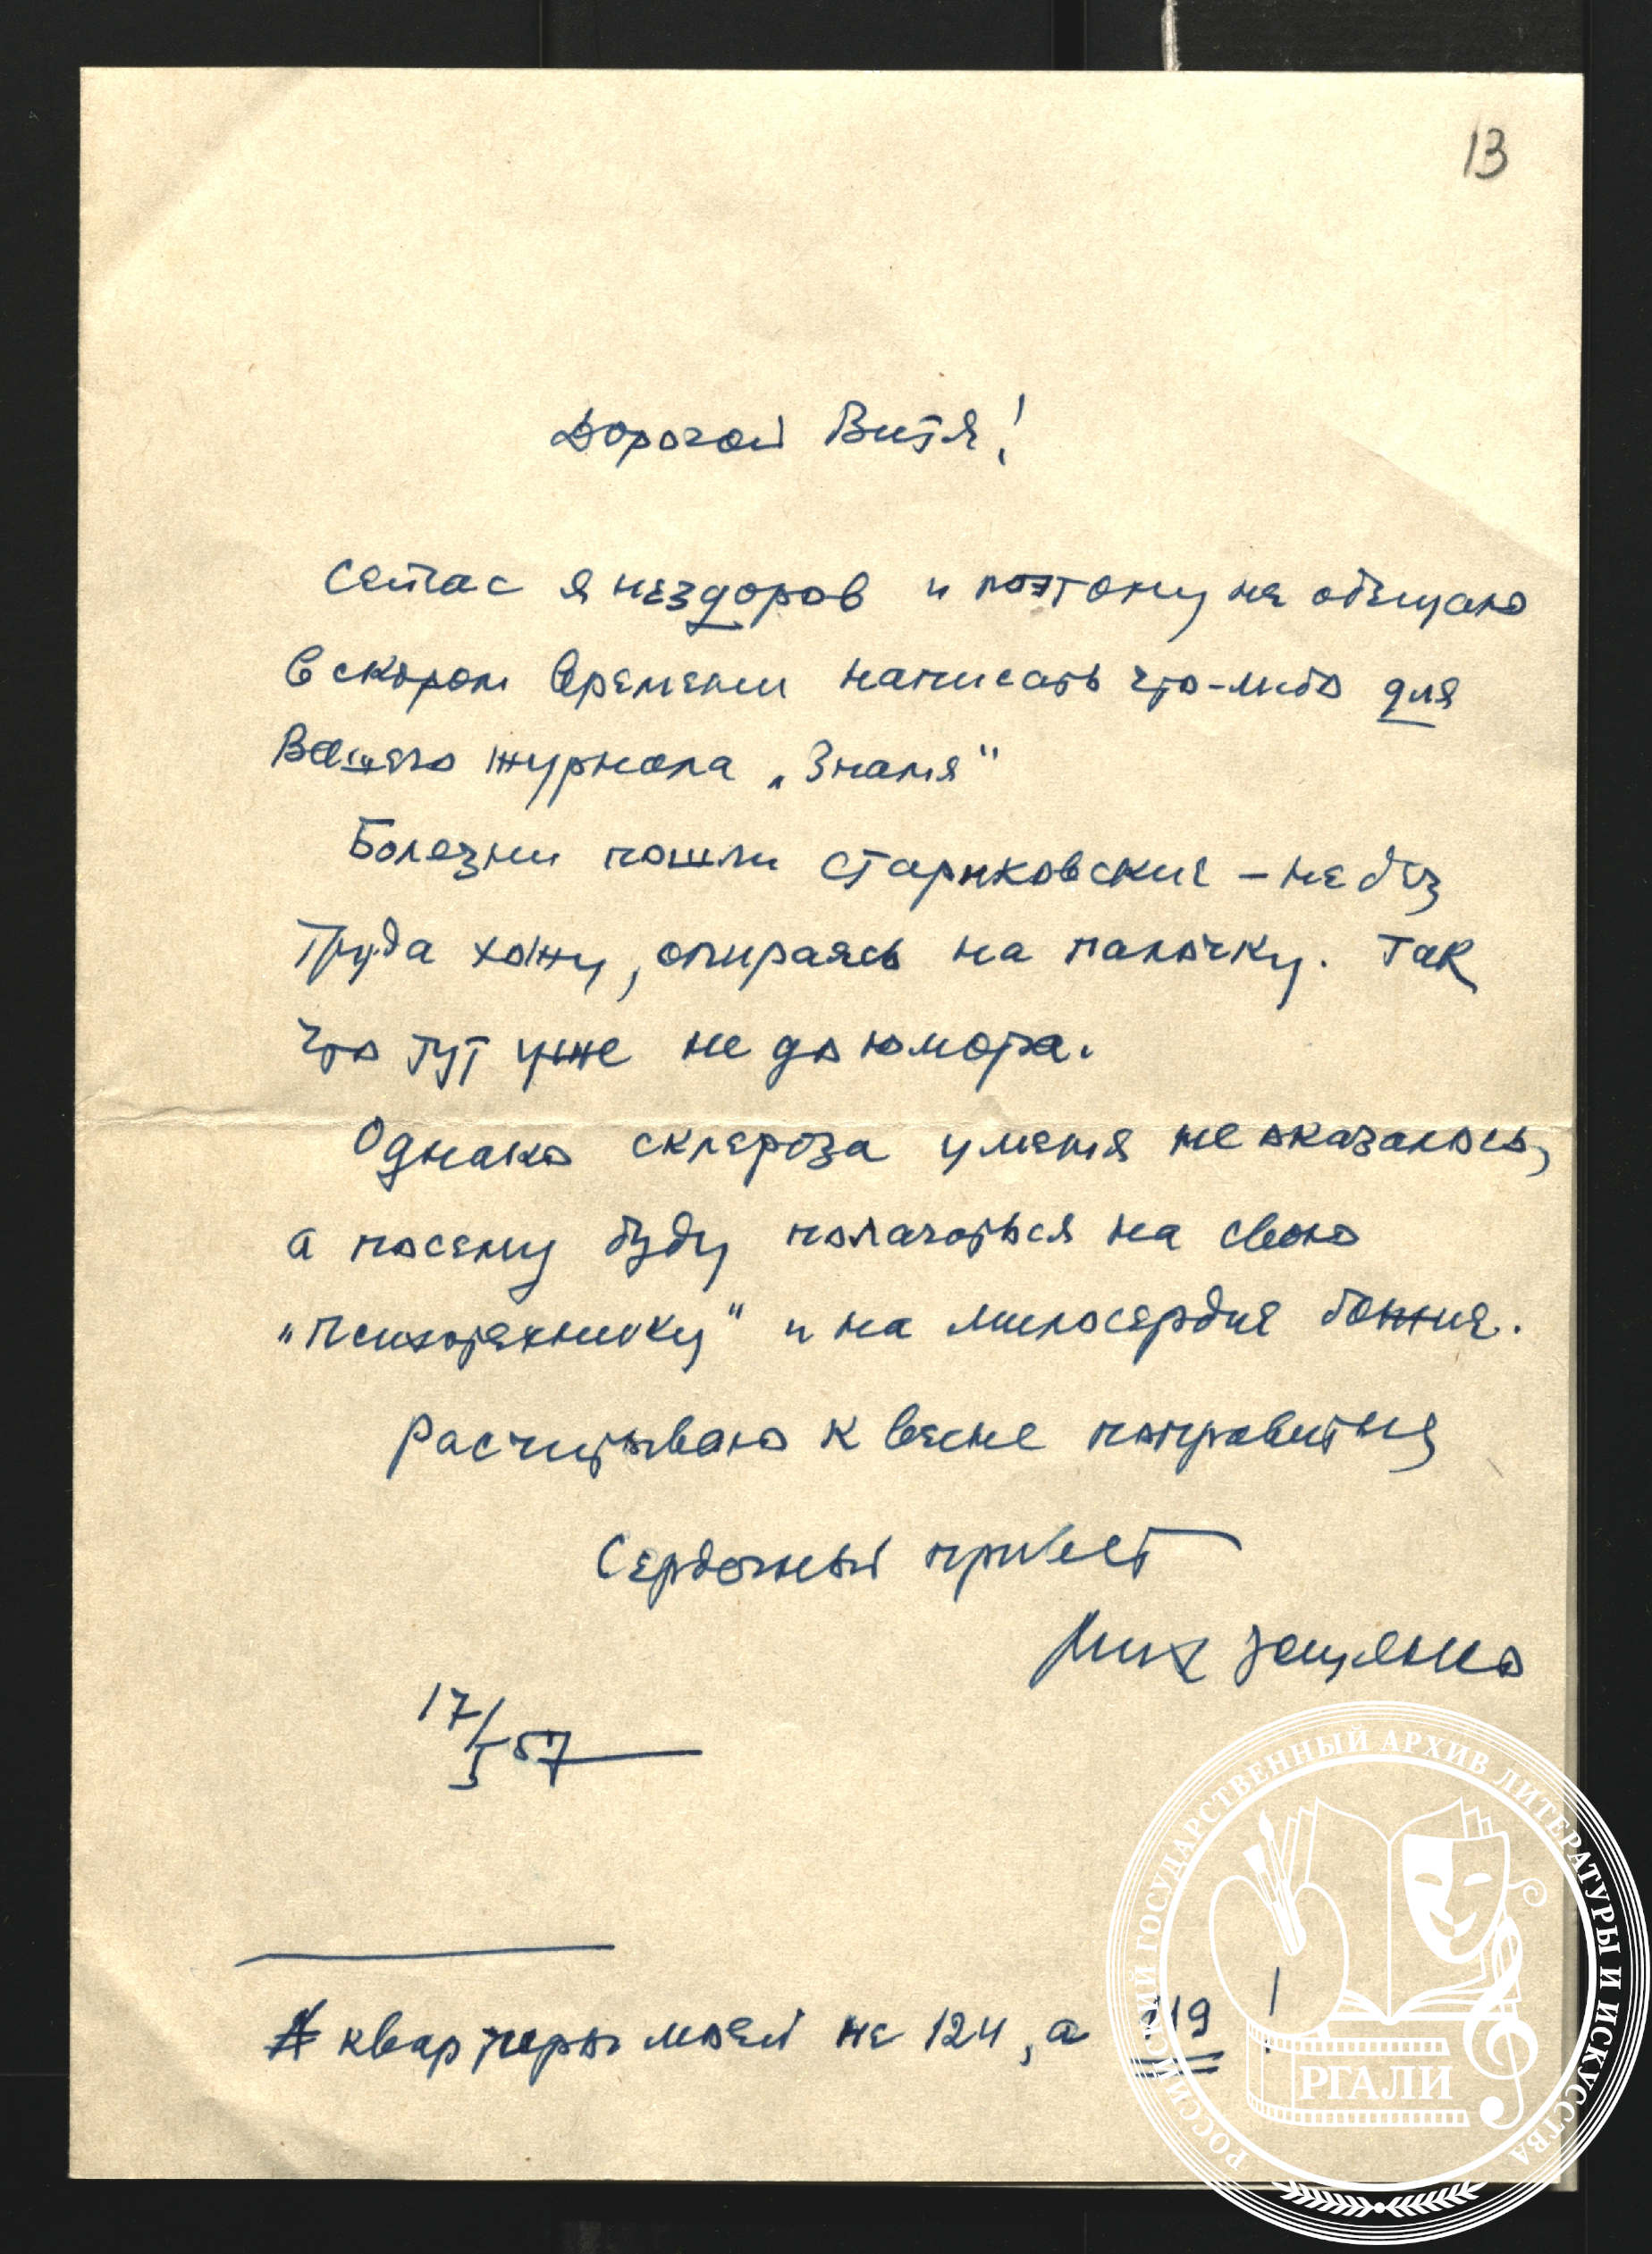 13
Дорогой Витя!
Сейчас я нездоров и поэтому не обещаю
в скором времени написать что-либо для
Вашего журнала „Знамя“
Болезни пошли стариковские – не без
труда хожу, опираясь на палочку. Так
что тут уже не до юмора.
Однако склероза у меня не оказалось,
а посему буду полагаться на свою
„психотехнику“ и на милосердие божие.
Расчитываю к весне поправиться
Сердечный привет
Мих Зощенко
17/I 57
№ квартиры моей не 124, а 119!
РОССИЙСКИЙ ГОСУДАРСТВЕННЫЙ АРХИВ ЛИТЕРАТУРЫ И ИСКУССТВА
РГАЛИ